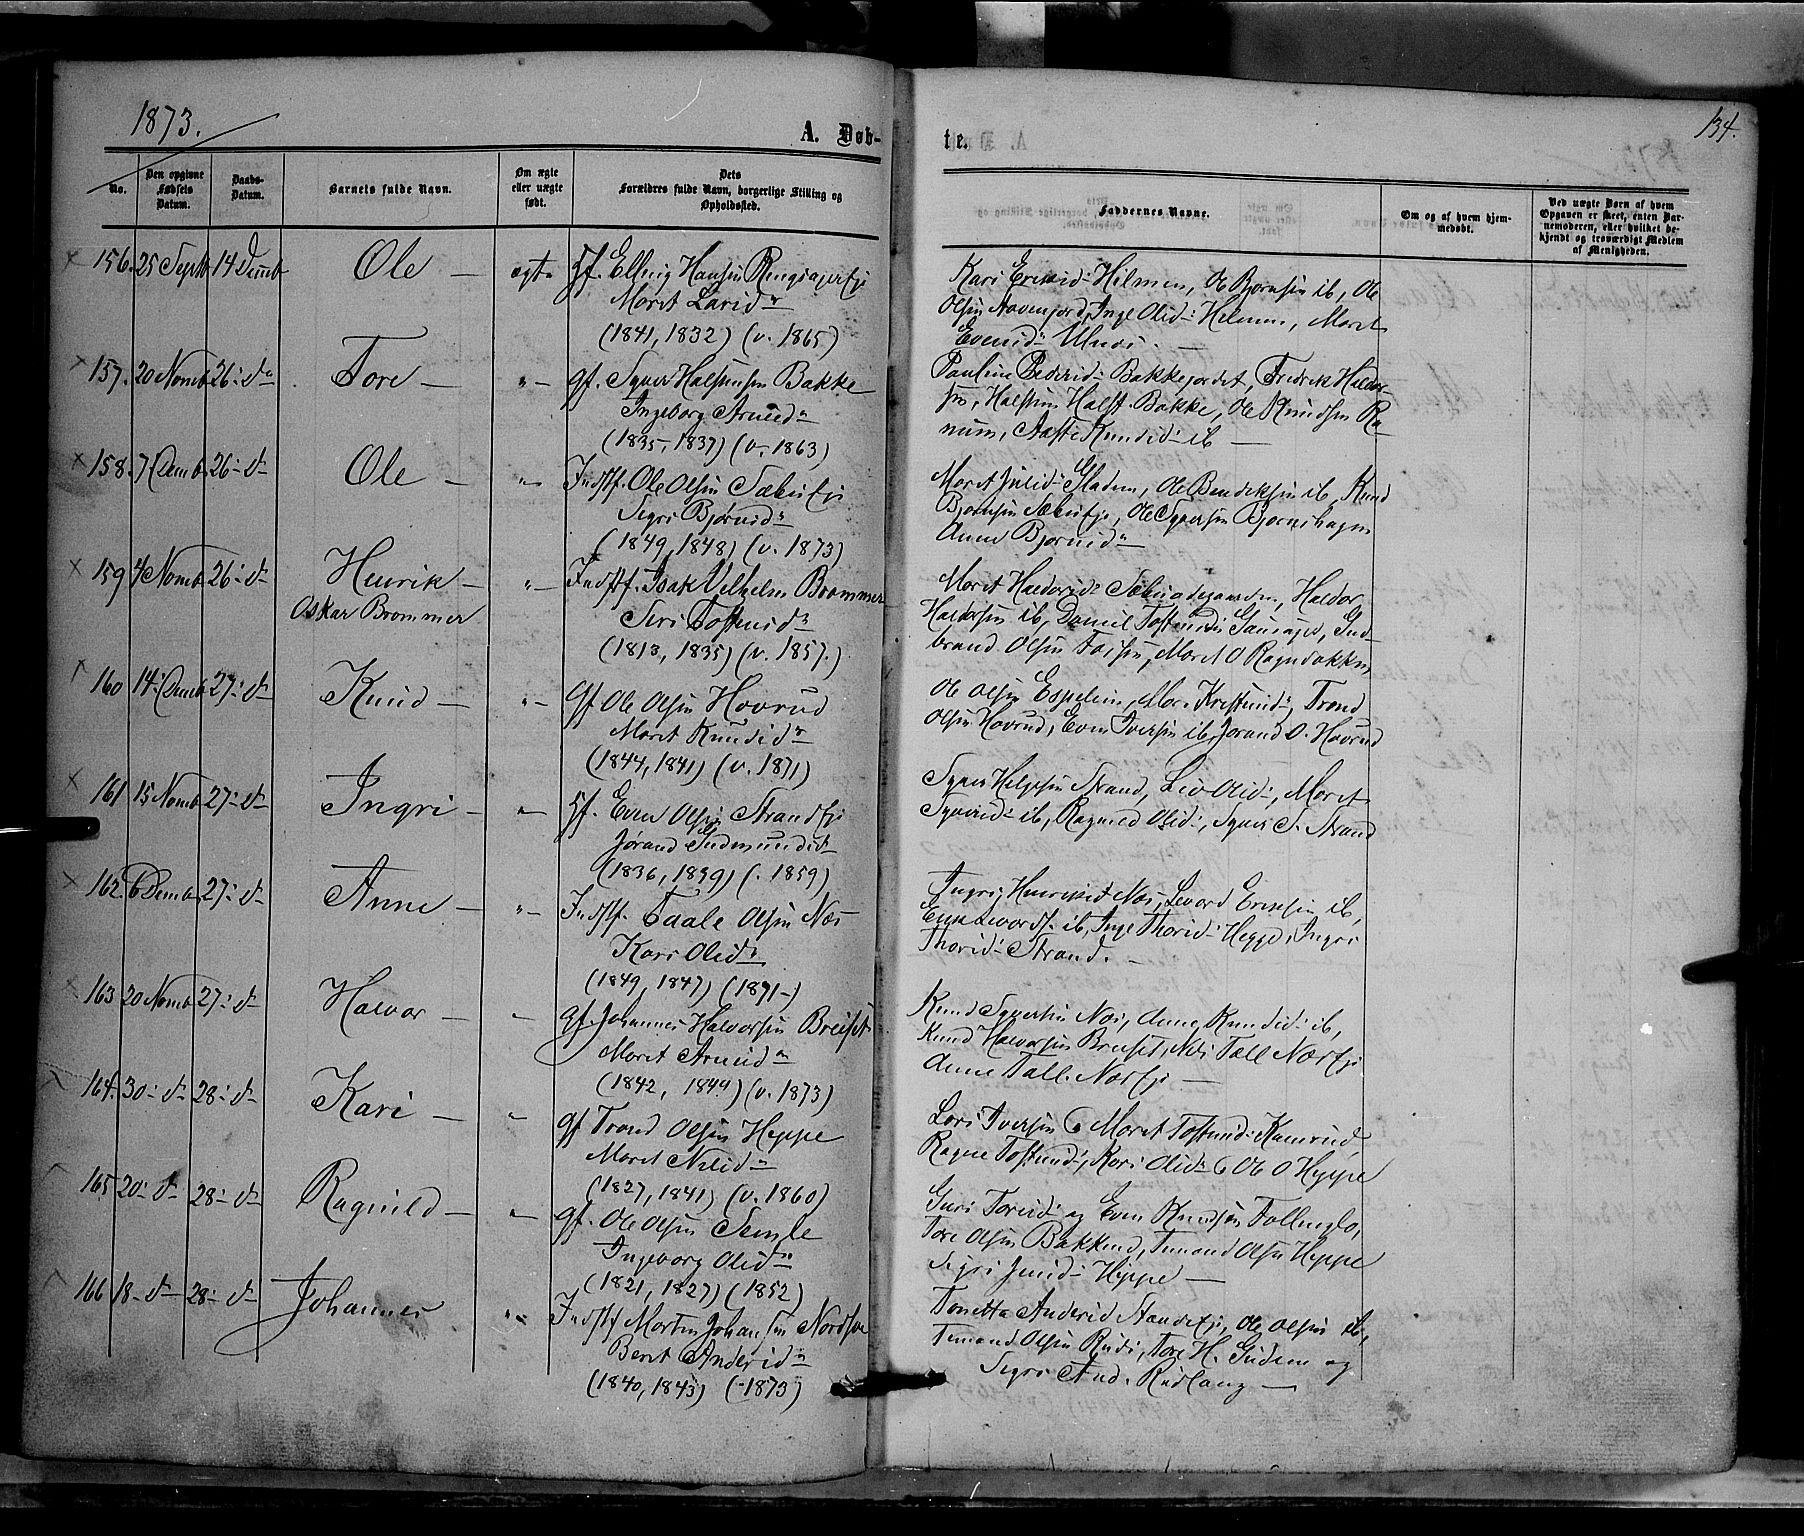 1873.
134.
A. Døb-
te.
No.
Den opgivne Fødsels Datum.
Daabs-Datum.
Barnets fulde Navn.
Om ægte eller uægte født.
Dets Forældres fulde Navn, borgerlige Stilling og Opholdssted.
Faddernes Navne.
Om og af hvem hjemmedøbt.
Ved uægte Børn af hvem Opgaven er skeet, enten Barnemoderen, eller hvilket bekjendt og troværdigt Medlem af Menigheden.
156. 25 Septb 14 Decmb Ole — ægte Gf. Elling Hansen
Maret Larsd:
(1841, 1832) (v. 1865)
Kari Eriksd: Helmen, Ole Bjørnsen ib, Ole
Olsen, Inge Olsd: Helmen, Maret
Evensd: Ulnes. —
157. 20 Novmb 26: d: Tore — "— Gf. Syver Halstensen Bakke
Ingeborg Arnesd:
(1835, 1837) (v. 1863)
Pauline Pedersd: Bakkejordet, Fredrik Haldor-
sen, Halsten Halst. Bakke, Ole Knudsen Ra-
num, Aaste Knudsd: ib —
158. 7 Decmb. 26: d: Ole — "— Indstf. Ole Olsen Sæbueje
Sigri Bjørnsd:
(1849, 1848) (v. 1873)
Maret Juulsd: Gladem, Ole Bendiksen ib, Knud
Bjørnsen Sæbueje, Ole Syversen Bjørnshagen
Anne Bjørnsd:
159 4 Novmb 26: d: Henrik — "— Indstf. Isak Vilhelm Brommer
Oskar Brommer
Siri Tostensd:
(1813, 1835) (v. 1857.)
Maret Haldorsd: Sæbuødegaarden, Haldor
Haldorsen ib, Daniel Tostensen, Gud-
brand Olsen, Maret O Rogndokken,
160 14: Decmb 27: d: Knud — "— Gf Ole Olsen Hovrud
Maret Knudsd:
(1844, 1841) (v. 1871)
Ole Olsen Espelien, Mar. Kristensd:, Trond
Olsen Hovrud, Even Iversen ib, Jørand O. Hovrud
161 15 Novmb 27: d: Ingri — "— Gf. Even Olsen Strandeje
Jørand Gudmundsd:
(1836, 1839) (. 1859)
Syver Helgesen Strand, Liv Olsd:, Maret
Syversd: ib, Ragned Olsd:, Syver S. Strand
162. 6 Decmb 27: d: Anne — "— Indstf. Taale Olsen Næs
Kari Olsd:
(1849, 1847) (1871-)
Ingri Henriksd Næs, Levord Eriksen ib,
Erik Levords. ib, Inge Thorsd: Hegge, Ingri
Thorsd: Strand. —
163 20 Novmb. 27: d: Halvor — "— Gf. Johannes Halvorsen Breiset
Maret Arnesd:
(1842, 1849) (v. 1873)
Knud Syversen Næs, Anne Knudsd: ib,
Knud Halvorsen Breiset, Nils Tall. Næseje
Anne Tall. Næseje —
164. 30: d: 28: d: Kari — "— Gf Trond Olsen Heppe
Maret Nilsd:
(1827, 1841) (v. 1860)
Lars Iversen & Maret Tostensd: Kamrud
Ragne Tostensd:, Kari Olsd: & Ole O Heppe
165 20: d: 28: d: Ragnild — "— Gf. Ole Olsen Semle
Ingeborg Olsd:
(1821, 1827) (1852)
Guri Toresd: og Even Knudsen Follinglo,
Tore Olsen Bakkend, Temand Olsen Heppe
Sigri Juulsd: Heppe —
166 18: d: 28: d: Johannes "— Indstf Morten Johansen
Berit Andersd:
(1840, 1843) (-1873)
Tonetta Andersd Strandeje, Ole Olsen ib,
Temand Olsen Rudi, Tore H. Gudem og
Sigri And. Rudlang —